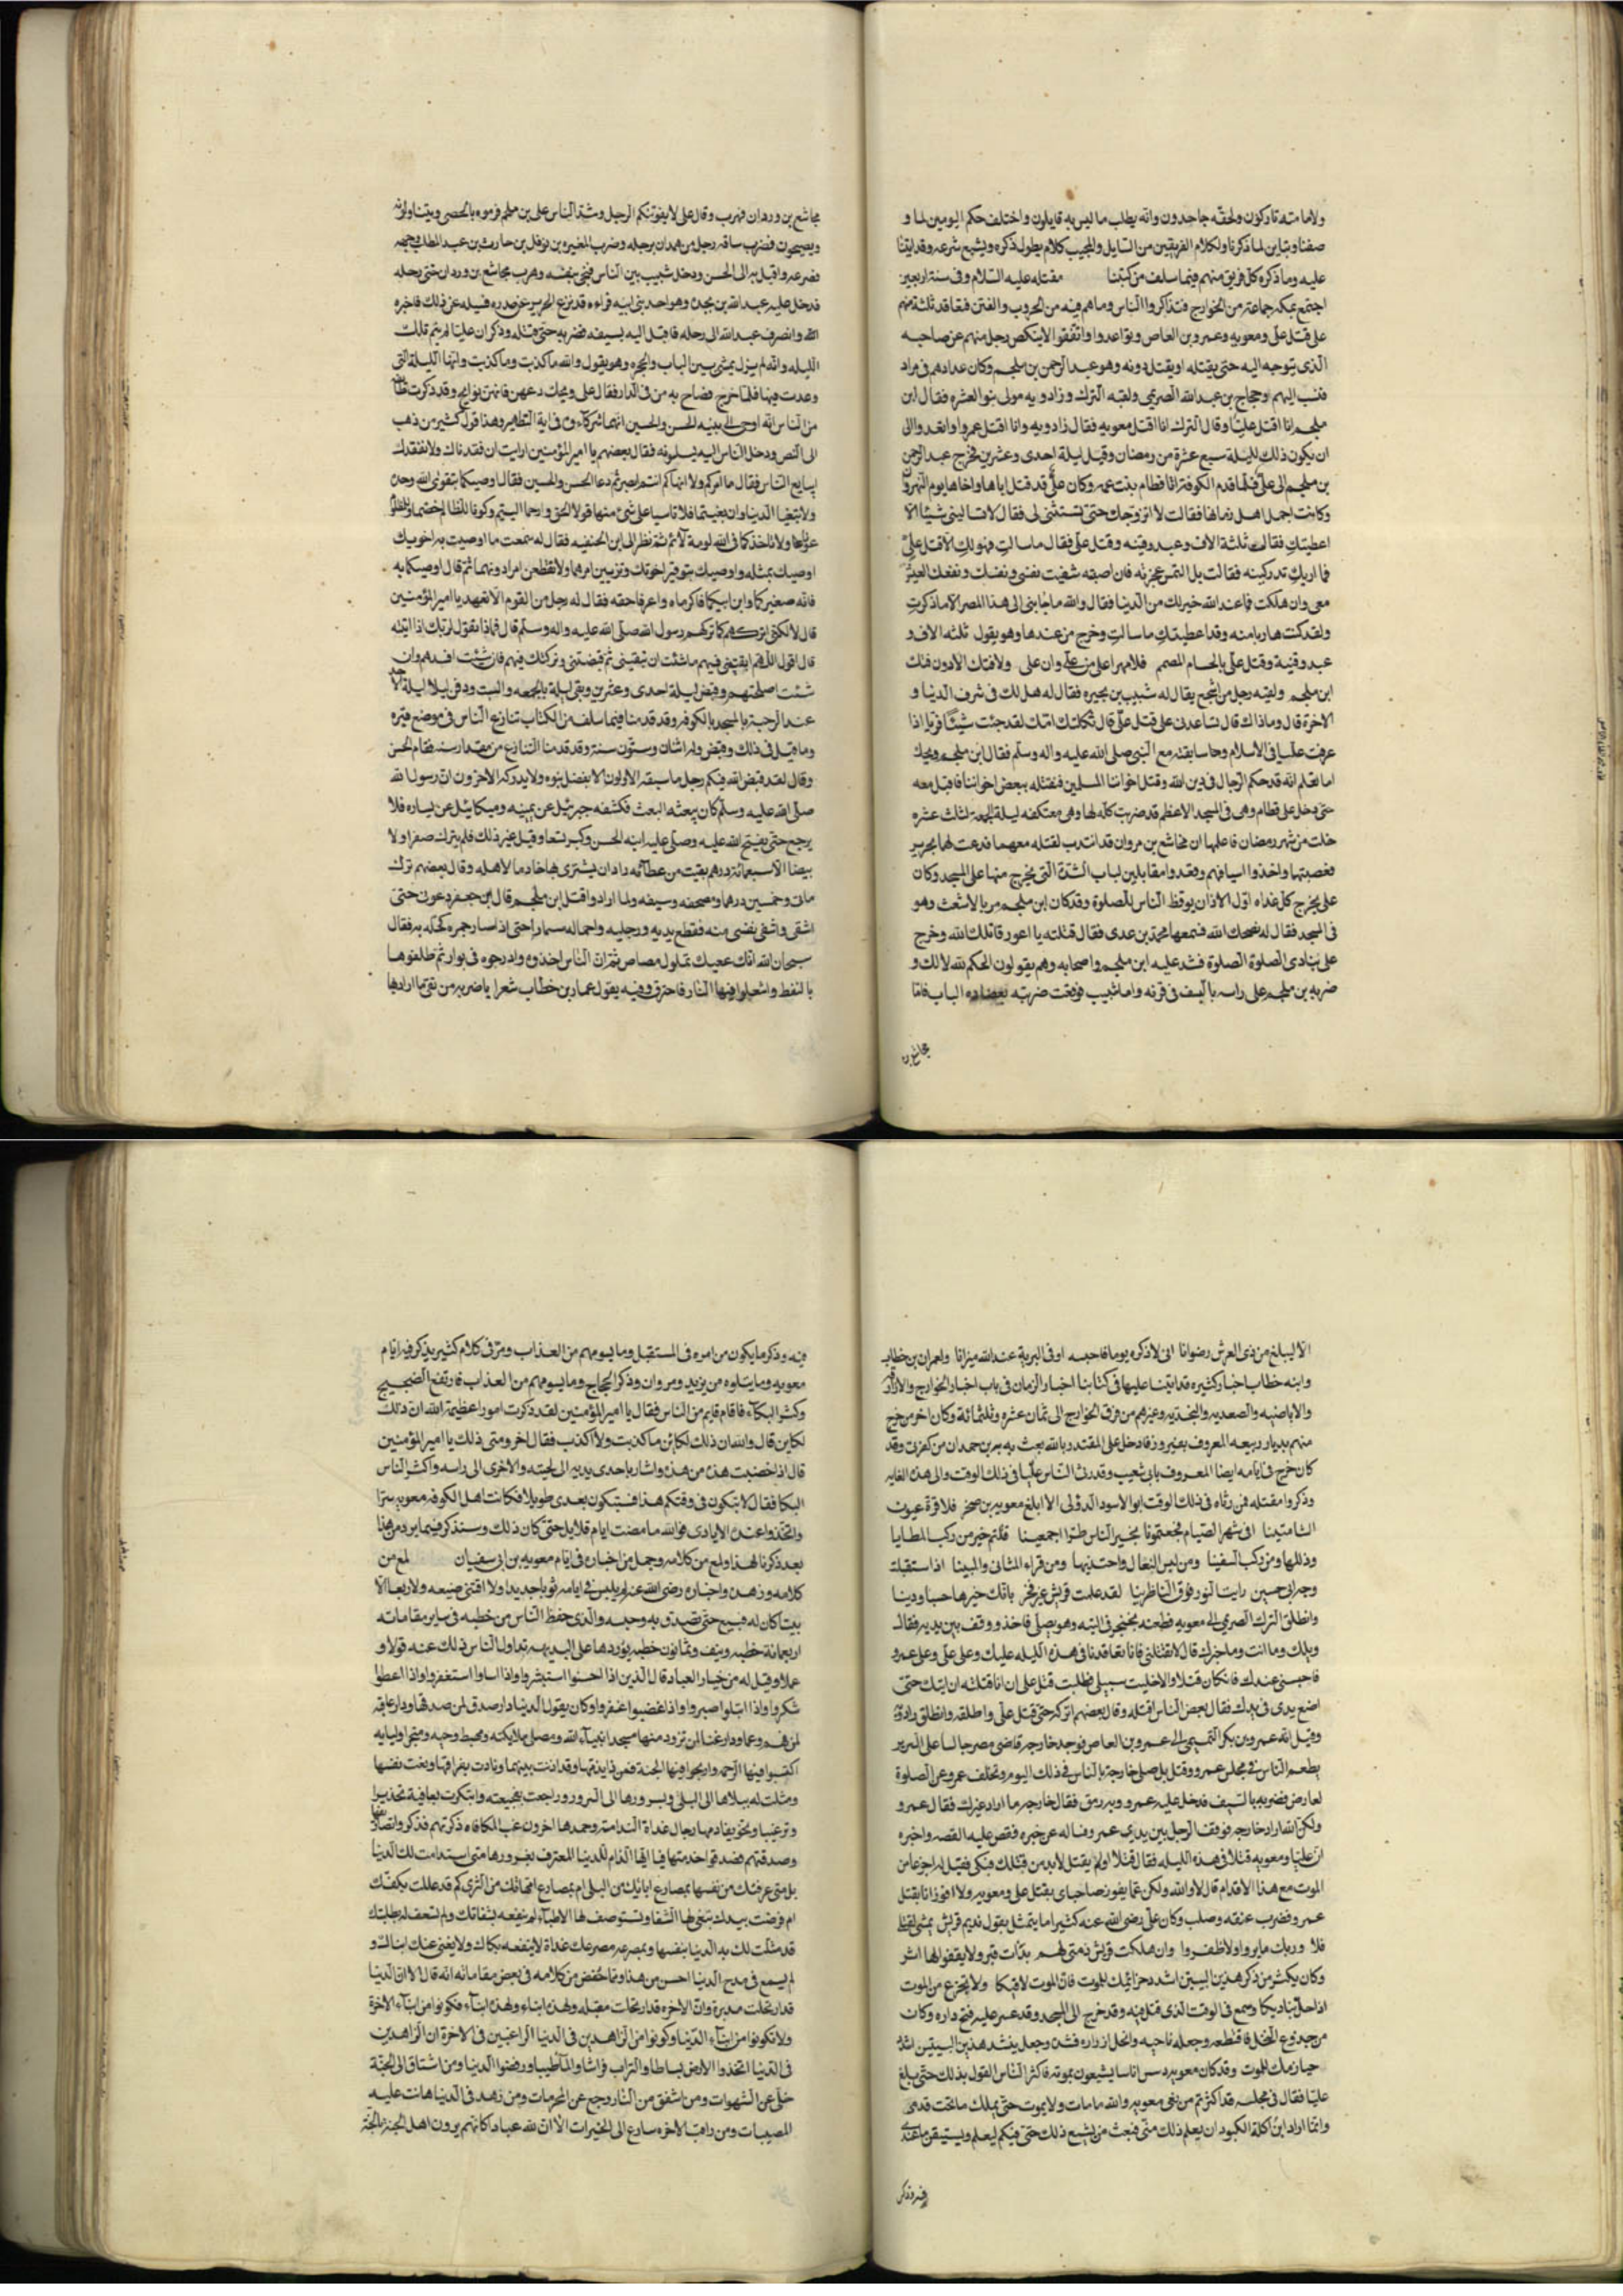 ولامامته تاركون ولحقه جاحدون وانه يطلب ما ليس به قايلون واختلف حكم اليومين لما و
صفنا وتباين لما ذكرنا ولكلام الفريقين من السايل والمجيب كلام يطول ذكره ويشبع شرعه وقد اتينا
عليه وما ذكره كل فريق منهم فيما سلف من كتبنا مقتله عليه السلام وفى سنة اربعين
اجتمع بمكه جماعة من الخوارج فتذاكروا الناس وما هم فيه من الحروب والفتن فتعاقد ثلثة منهم
على قتل على ومعويه وعمرو بن العاص وتواعدوا واتفقوا الا ينكص رجل منهم عن صاحبه
الذى يتوجه اليه حتى يقتله او يقتل دونه وهو عبد الرحمن بن ملجم وكان عدادهم فى مراد
فنسب اليهم وحجاج بن عبد الله الصريمى ولقبه الترك وزادويه مولى بنو العنبره فقال ابن
ملجم انا اقتل عليا وقال الترك انا اقتل معويه فقال زادويه وانا اقتل عمرا واتعدوا الى
ان يكون ذلك لليلة سبع عشرة من رمضان وقيل ليلة احدى وعشرين فخرج عبد الرحمن
بن ملجم الى على فلما قدم الكوفة اتا قطام بنت عمه وكان على قد قتل اباها واخاها يوم النهروان
وكانت اجمل اهل زمانها فقالت لا اتزوجك حتى تستثنى لى فقال لا تسالينى شيئا الا
اعطيتك فقالت ثلثة الاف وعبد وقينه وقتل على فقال ما سالت فهو لك الا قتل على
فما اراك تدركينه فقالت بل التمس غرته فان اصبته شفيت نفسى ونفسك ونفعك العيش
معى وان هلكت فما عند الله خير لك من الدنيا فقال والله ما جابنى الى هذا المصر الا ما ذكرت
ولقد كنت هاربا منه وقد اعطيتك ما سالت وخرج من عندها وهو يقول ثلثه الاف و
عبد وقنية وقتل على بالحسام المصمم فلا مهر اعلى من على وان على ولا فتك الا دون فتك
ابن ملجم ولقيه رجل من اشجع يقال له شبيب بن بجيره فقال له هل لك فى شرف الدنيا و
الاخرة قال وما ذاك قال تساعدنى على قتل على قال ثكلتك امك لقد جئت شيئا فريا اذا
عرفت عليا فى الاسلام وما سابقته مع النبى صلى الله عليه واله وسلم فقال ابن ملجم ويحك
اما تعلم انه قد حكم الرجال فى دين الله وقتل اخواننا المسلمين فنقتله ببعض اخواننا فاقبل معه
حتى دخل على قطام وهى فى المسجد الاعظم قد ضربت كله لها وهى معتكفه ليلة الجمعة لثلث عشره
خلت من شهر رمضان فاعلمها ان مجاشع بن مروان قد انتدب لقتله معهما فدعت لها بحرير
فعصبتها واخذوا اسيافهم وقعدوا مقابلين لباب السدة التى يخرج منها على المسجد وكان
على يخرج كل غداه اول الاذان يوقظ الناس للصلوة وقد كان ابن ملجم مر بالاشعث وهو
فى المسجد فقال له فضحك الله فسمعها محمد بن عدى فقال قتلته يا اعور قاتلك الله وخرج
على ينادى الصلوة الصلوة فشد عليه ابن ملجم واصحابه وهم يقولون الحكم لله لا لك و
ضربه بن ملجم على راسه بالسيف فى قرنه واما شبيب فوقعت ضربته بعضاده الباب فاما
مجاشع بن
مجاشع بن وردان فهرب وقال على لا يفوتنكم الرجل وشد الناس على بن ملجم فرموه بالحصى ويتناولونه
ويصيحون فضرب ساقه رجل من همدان برجله وضرب المغيره بن نوفل بن حارث بن عبد المطلب وجهه
فصرعه واقبل به الى الحسن ودخل شبيب بين الناس فنجى بنفسه وهرب مجاشع بن وردان حتى رحله
فدخل عليه عبد الله بن بجدة وهو احد بنى ابيه فراءه قد نزع الحرير عن صدره فسيله عن ذلك فاخبره
الله وانصرف عبد الله الى رحله فاقبل اليه بسيفه فضربه حتى قتله وذكر ان عليا لم ينم تلك
الليله وانه لم يزل يمشى بين الباب والحجره وهو يقول والله ما كذبت وما كذبت وانها الليلة التى
وعدت فيها فلما خرج فصاح به من فى الدار فقال على ويحك دعهن فانهن نوايح وقد ذكرت طائفة
من الناس انه اوصى الى بنيه الحسن والحسين انهما شركاءه فى اية التطهير وهذا قول كثير من ذهب
الى النص ودخل الناس اليه يسلونه فقال بعضهم يا امير المؤمنين ارايت ان فقدناك ولا نفقدك
ايبايع الناس فقال ما امركم ولا انهاكم انتم ابصر ثم دعا الحسن والحسين فقال اوصيكما بتقوى الله وحده
ولا تبغيا الدنيا وان بغيتكما فلا تاسيا على شى منها قولا الحق وارحما اليتيم وكونا للظالم خصما وللمظلوم
عونا ولا تاخذكما فى الله لومة لائم ثم نظر الى ابن الحنفيه فقال له سمعت ما اوصيت به اخويك
اوصيك بمثله واوصيك بتوقير اخوتك وتزيين امرهما ولا تقطعن امرا دونهما ثم قال اوصيكما به
فانه صغيركما وابن ابيكما فاكرماه واعرفا حقه فقال له رجل من القوم الا تعهد يا امير المؤمنين
قال لا لكنى اتركهم كما تركهم رسول الله صلى الله عليه واله وسلم قال فماذا تقول لربك اذا اتيته
قال اقول اللهم ابقيتنى فيهم ما شئت ان تبقينى ثم قبضتنى وتركتك فيهم فان شئت افسدهم وان
شئت اصلحتهم وقبض ليلة احدى وعشرين وبقى ليلة الجمعه والسبت ودفن ليلا ليلة الاحد
عند الرحبة بالمسجد بالكوفه وقد قدمنا فيما سلف من الكتاب تنازع الناس فى موضع قبره
وما قيل فى ذلك وقبض وله اثنان وستون سنة وقد قدمنا التنازع من مقدار سنه فقام الحسن
وقال لقد قبض الله فيكم رجل ما سبقه الاولون الا بفضل نبوه ولا يدركه الاخرون ان رسول الله
صلى الله عليه وسلم كان يبعثه البعث فكشفه جبرئيل عن يمينه وميكائيل عن يساره فلا
يرجع حتى يفتح الله عليه وصلى عليه ابنه الحسن وكبر تسعا وقيل غير ذلك فلم يترك صفرا ولا
بيضا الا سبعمائة درهم بقيت من عطائه اراد ان يشترى بها خادما لاهله وقال بعضهم ترك
ماتى وخمسين درهما ومصحفه وسيفه ولما ارادوا قتل ابن ملجم قال ابن جعفر دعونى حتى
اشفى نفسى منه فقطع يديه ورجليه واحما له مسمارا حتى اذا صار جمره كحله به فقال
سبحان الله انك عميك تملول مصاص ثم ان الناس اخذوه وادرجوه فى بوارى ثم طلقوها
بالنفط واشعلوا فيها النار فاحترق وفيه يقول عمار بن خطاب شعرا يا ضربه من تقى ما اراد بها
الا ليبلغ من ذى العرش رضوانا انى لاذكره يوما فاحسبه اوفى البرية عند الله ميزانا ولعمران بن خطاب
وابنه خطاب اخبار كثيره قد اتينا عليها فى كتابنا اخبار الزمان فى باب اخبار الخوارج والازارقه
والاباضيه والصعديه والنجديه وغيرهم من فرق الخوارج الى ثمان عشره وثلثمائة وكان اخر من خرج
منهم بديار ربيعه المعروف بغيرون فادخل على المقتدر بالله بعث به بن حمدان من كفرتوثى وقد
كان خرج فى ايامه ايضا المعروف بابى شعيب وقد رثى الناس عليا فى ذلك الوقت والى هذه الغايه
وذكروا مقتله فمن رثاه فى ذلك الوقت ابو الاسود الدؤلى الا ابلغ معويه بن صخر فلا قرة عيون
الشامتينا افى شهر الصيام فجعتمونا بخير الناس طرا اجمعينا قتلتم خير من ركب المطايا
وذللها ومن ركب السفينا ومن لبس النعال واحتذيها ومن قراء المثانى والمبينا اذا استقبلت
وجه ابى حسين رايت النور فوق الناظرينا لقد علمت قريش غير فخر بانك خيرها حسبا ودينا
وانطلق الترك الصريمى الى معويه فطعنه بخنجر فى اليته وهو يصلى فاخذ ووقف بين يديه فقال
ويلك وما انت وما خبرك قال لا تقتلنى فانا تعاقدنا فى هذه الليله عليك وعلى على وعلى عمرو
فاحبسنى عندك فان كان قتلا والا خليت سبيلى فطلبت قتل على ان انا قتلته ان ايتك حتى
اضع يدى فى يدك فقال بعض الناس اقتله وقال بعضهم اتركه حتى قتل على واطلقه وانطلق زادويه
وقيل انه عمرو بن بكر التميمى الى عمرو بن العاص فوجد خارجه قاضى مصر جالسا على السرير
يطعم الناس فى مجلس عمرو وقيل بل صلى خارجة بالناس فى ذلك اليوم وتخلف عمرو عن الصلوة
لعارض فضربه بالسيف فدخل عليه عمرو وبه رمق فقال خارجه ما اراد غيرك فقال عمرو
ولكن الله اراد خارجه فوقف الرجل بين يدى عمرو وساله عن خبره فقص عليه القصه واخبره
ان عليا ومعويه قتلا فى هذه الليله فقال قتلا اولم يقتلا لابد من قتلك فبكى فقيل له اجزعا من
الموت مع هذا الاقدام قال لا والله ولكن غما يفوز صاحباى بقتل على ومعويه ولا افوز انا بقتل
عمرو فضرب عنقه وصلب وكان على رضى الله عنه كثيرا ما يتمثل بقول تلكم قريش تمنانى لتقتلنى
فلا وربك ما بروا ولا ظفروا وان هلكت قريش ذمتى لهم بذات قبر ولا يقفوا لها اثر
وكان يكثر من ذكر هذين البيتين اشدد حزائيمك للموت فان الموت لاقيكا ولا تجزع من الموت
اذا حل بناديكا وسمع فى الوقت الذى قتل فيه وقد خرج الى المسجد وقد عسر عليه فتح داره وكان
من جذوع النخل فاقتطعه وجعله ناحيه وانحل ازواره فشده وجعل ينشد هذين البيتين اشدد
حيازيمك للموت وقد كان معويه دسس اناسا يشيعون بموته فاكثر الناس القول بذلك حتى بلغ
عليا فقال فى مجلسه قد اكثرتم من نعى معويه والله ما مات ولا يموت حتى يملك ما تحت قدمى
وانما اراد ابن اكلة الكبود ان يعلم ذلك منى فبعث من يشيع ذلك حتى فيكم ليعلم ويستيقن ما عندى
فيه وذكر
فيه وذكر ما يكون من امره فى المستقبل وما يسومهم من العذاب ومر فى كلام كثير يذكر فيه ايام
معويه وما يتلوه من يزيد ومروان وذكر الحجاج وما يسومهم من العذاب فارتفع الضجيج
وكثر البكاء فاقام قايم من الناس فقال يا امير المؤمنين لقد ذكرت امورا عظيمة الله ان ذلك
لكاين قال والله ان ذلك لكائن ما كذبت ولا اكذب فقال اخر ومتى ذلك يا امير المؤمنين
قال اذا خضبت هذه من هذه واشار باحدى يديه الى لحيته والاخرى الى راسه واكثر الناس
البكا فقال لا تبكون فى وقتكم هذا فستبكون بعدى طويلا فكاتب اهل الكوفه معويه سرا
واتخذوا عنده الايادى فوالله ما مضت ايام قلايل حتى كان ذلك وسنذكر فيما يرد من هذا
بعد ذكرنا لهذا ولمع من كلامه وجمل من اخباره فى ايام معويه بن ابى سفيان لمع من
كلامه وزهده واخباره رضى الله عنه لم يلبس فى ايامه ثوبا جديدا ولا اقتنى ضيعه ولا ربعا الا
بيتا كان له فبيع حتى تصدق به وحبسه والذى حفظ الناس من خطبه فى ساير مقاماته
اربعمائة خطبه ونيف وثمانون خطبه يوردها على البديهه تداول الناس ذلك عنه قولا و
عملا وقيل له من خيار العباد قال الذين اذا احسنوا استبشروا واذا اساوا استغفروا واذا اعطوا
شكروا واذا ابتلوا صبروا واذا غضبوا اغفروا وكان يقول الدنيا دار صدق لمن صدقها ودار عافيه
لمن فهم وعا ودار غنا لمن تزود منها مسجد انبياء الله ومصلى ملايكته ومهبط وحيه ومتجر اوليايه
اكتسبوا فيها الرحمه وارجوا فيها الجنة فمن ذا يذمها وقد اذنت ببينها ونادت بفراقها ونعت نفسها
ومثلت له ببلاها الى البلى وبسرورها الى السرور وراجعت بفجيعه وابتكرت بعافية تحذيرا
وترغيبا وتخويفا ذمها رجال غداة الندامة وحمدها اخرون غب المكافاه ذكرتهم فذكروا
وصدقتهم فصدقوا خدمتها فيا ايها الذام للدنيا المغترف بغرورها متى استدامت لك الدنيا
بل متى غرتك من نفسها بمصارع ابايك من البلى ام بمصارع امهاتك من الثرى كم قد عللت بكفيك
ام مرضت بيدك تبغى لها الشفا وتستوصف لها الاطباء لم ينفعه بشفائك ولم تسعف له بطلبتك
قد مثلت لك به الدنيا بنفسها وبمصرعه مصرعك غداة لا ينفعه بكاك ولا يغنى عنك
لم يسمع فى مدح الدنيا احسن من هذا ومما حفظ من كلامه فى بعض مقاماته انه قال الا ان الدنيا
قد ارتحلت مدبرة وان الاخره قد ارتحلت مقبله ولهذه ابناء ولهذه ابناء فكونوا من ابناء الاخرة
ولا تكونوا من ابناء الدنيا وكونوا من الزاهدين فى الدنيا الراغبين فى الاخرة ان الزاهدين
فى الدنيا اتخذوا الارض بساطا والتراب فراشا والماء طيبا ورفضوا الدنيا ومن اشتاق الى الجنة
خلى عن الشهوات ومن اشفق من النار رجع عن المحرمات ومن زهد فى الدنيا هانت عليه
المصيبات ومن راقب الاخره سارع الى الخيرات الا ان لله عبادا كانهم يرون اهل الجنة بالجنة